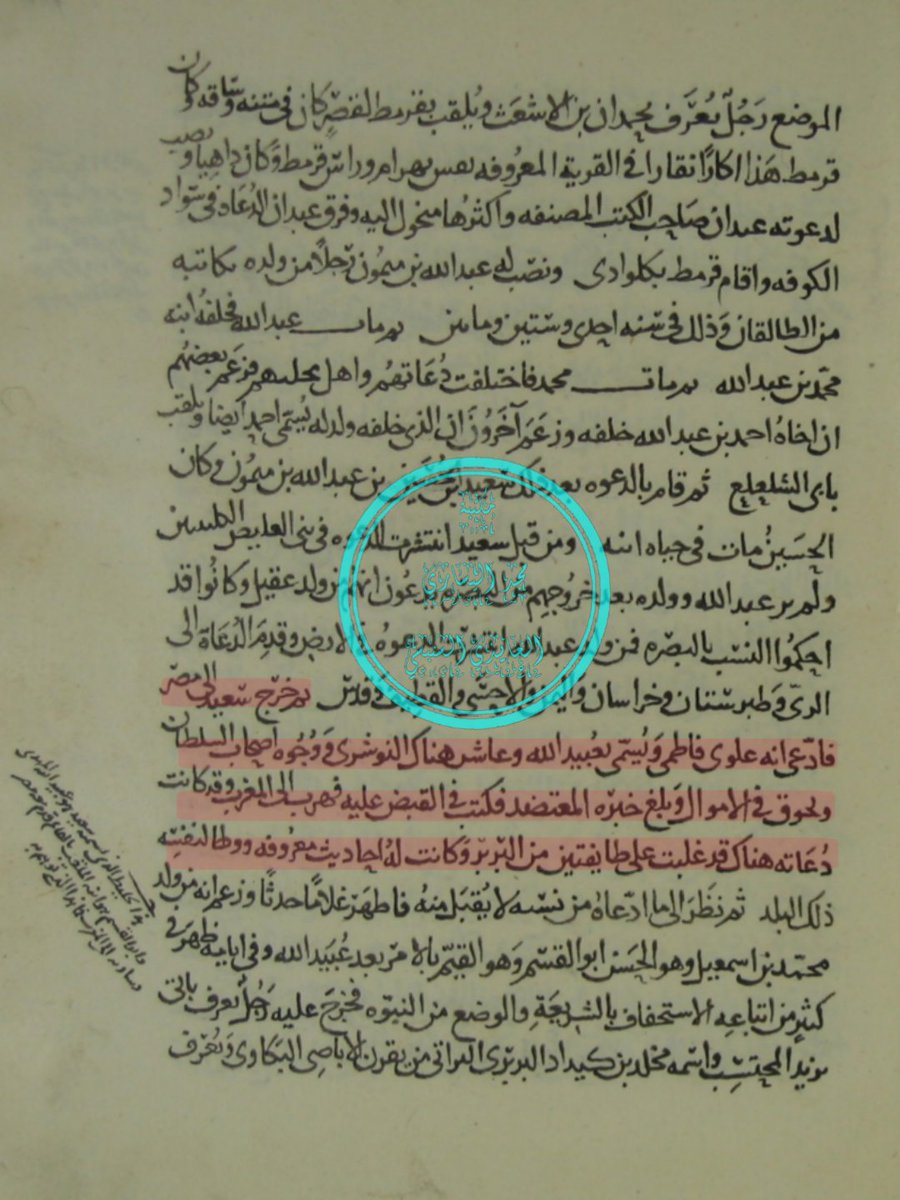 الموضع رجل يعرف بحمدان بن الاشعث ويلقب بقرمط لقصر كان في متنه وساقه وكان
قرمط هذا اكارا نقارا في القرية المعروفه بقس بهرام وراس قرمط وكان داهيا ونصب
لدعوته عبدان صاحب الكتب المصنفه واكثرها منحول اليه وفرق عبدان الدعاه في سواد
الكوفه واقام قرمط بكلواذى ونصب له عبدالله بن ميمون رجلا من ولده يكاتبه
من الطالقان وذلك في سنه احدى وستين ومايتين ثم مات عبدالله فخلفه ابنه
محمد بن عبدالله ثم مات محمد فاختلفت دعاتهم واهل نحلتهم فزعم بعضهم
ان اخاه احمد بن عبدالله خلفه وزعم آخرون ان الذي خلفه ولد له يسمى احمد ايضا ويلقب
بابي الشلعلع ثم قام بالدعوه بعد ذلك سعيد بن الحسين بن عبدالله بن ميمون وكان
الحسين مات في حياه ابيه ومن قبل سعيد انتشرت الدعوه في بني العليص الكلبيين
ولم يزل عبدالله وولده بعد خروجهم من البصره يدعون انهم من ولد عقيل وكانوا قد
احكموا النسب بالبصره فمن ولد عبدالله انتشرت الدعوه في الارض وقدم الدعاة الى
الري وطبرستان وخراسان واليمن والاحسى والقطيف وفدس ثم خرج سعيد الى مصر
فادعى انه علوي فاطمي ويسمى بعبيد الله وعاشر هناك النوشري ووجوه اصحاب السلطان
وتخوق في الاموال وبلغ خبره المعتضد فكتب في القبض عليه فهرب الى المغرب وقد كانت
دعاته هناك قد غلبت على طايفتين من البربر وكانت له احاديث معروفه ووطا لنفسه
ذلك البلد ثم نظر الى ما ادعاه من نسبه لا يقبل منه فاظهر غلاما حدثا وزعم انه من ولد
محمد بن اسمعيل وهو الحسن ابو القسم وهو القيم بالامر بعد عبيد الله وفي ايامه ظهر في
كثير من اتباعه الاستخفاف بالشريعة والوضع من النبوه فخرج عليه رجل يعرف بابي
يزيد المحتسب واسمه مخلد بن كيداد البربري من يفرن الاباضي النكاوي ويعرف